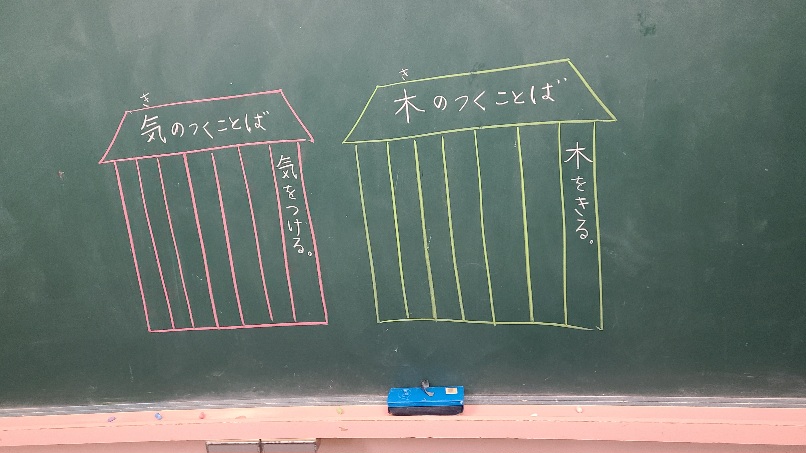 き
気のつくことば
気をつける。
き
木のつくことば
木をきる。